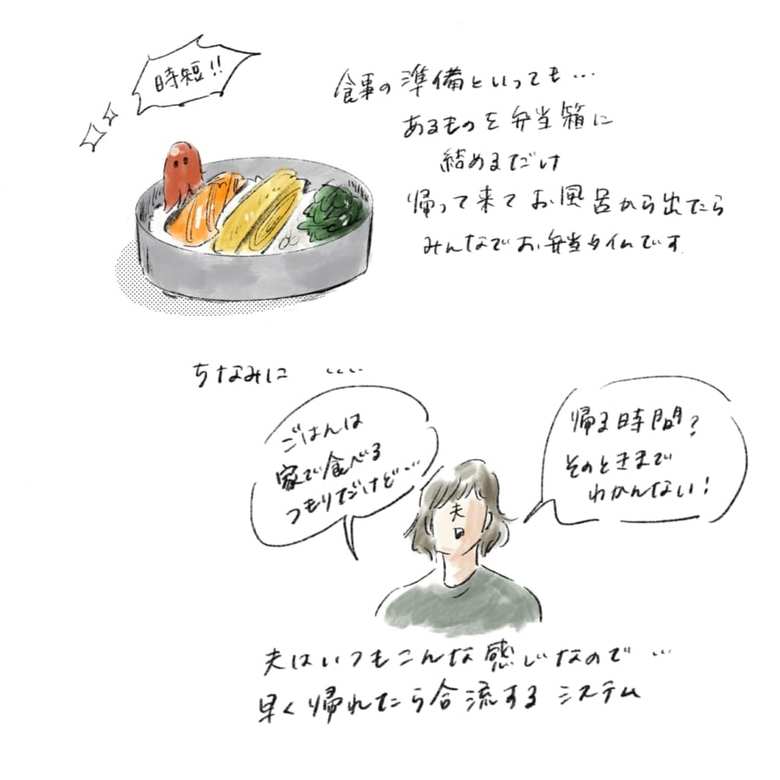 時短!!
食事の準備といっても…
あるものを弁当箱に
結めるだけ
帰って来てお風呂から出たら
みんなでお弁当タイムです
ちなみに ‥‥
ごはんは
家で食べる
つもりだけど…
帰る時間?
そのときまで
わかんない!
夫
夫はいつもこんな感じなので…
早く帰れたら合流するシステム